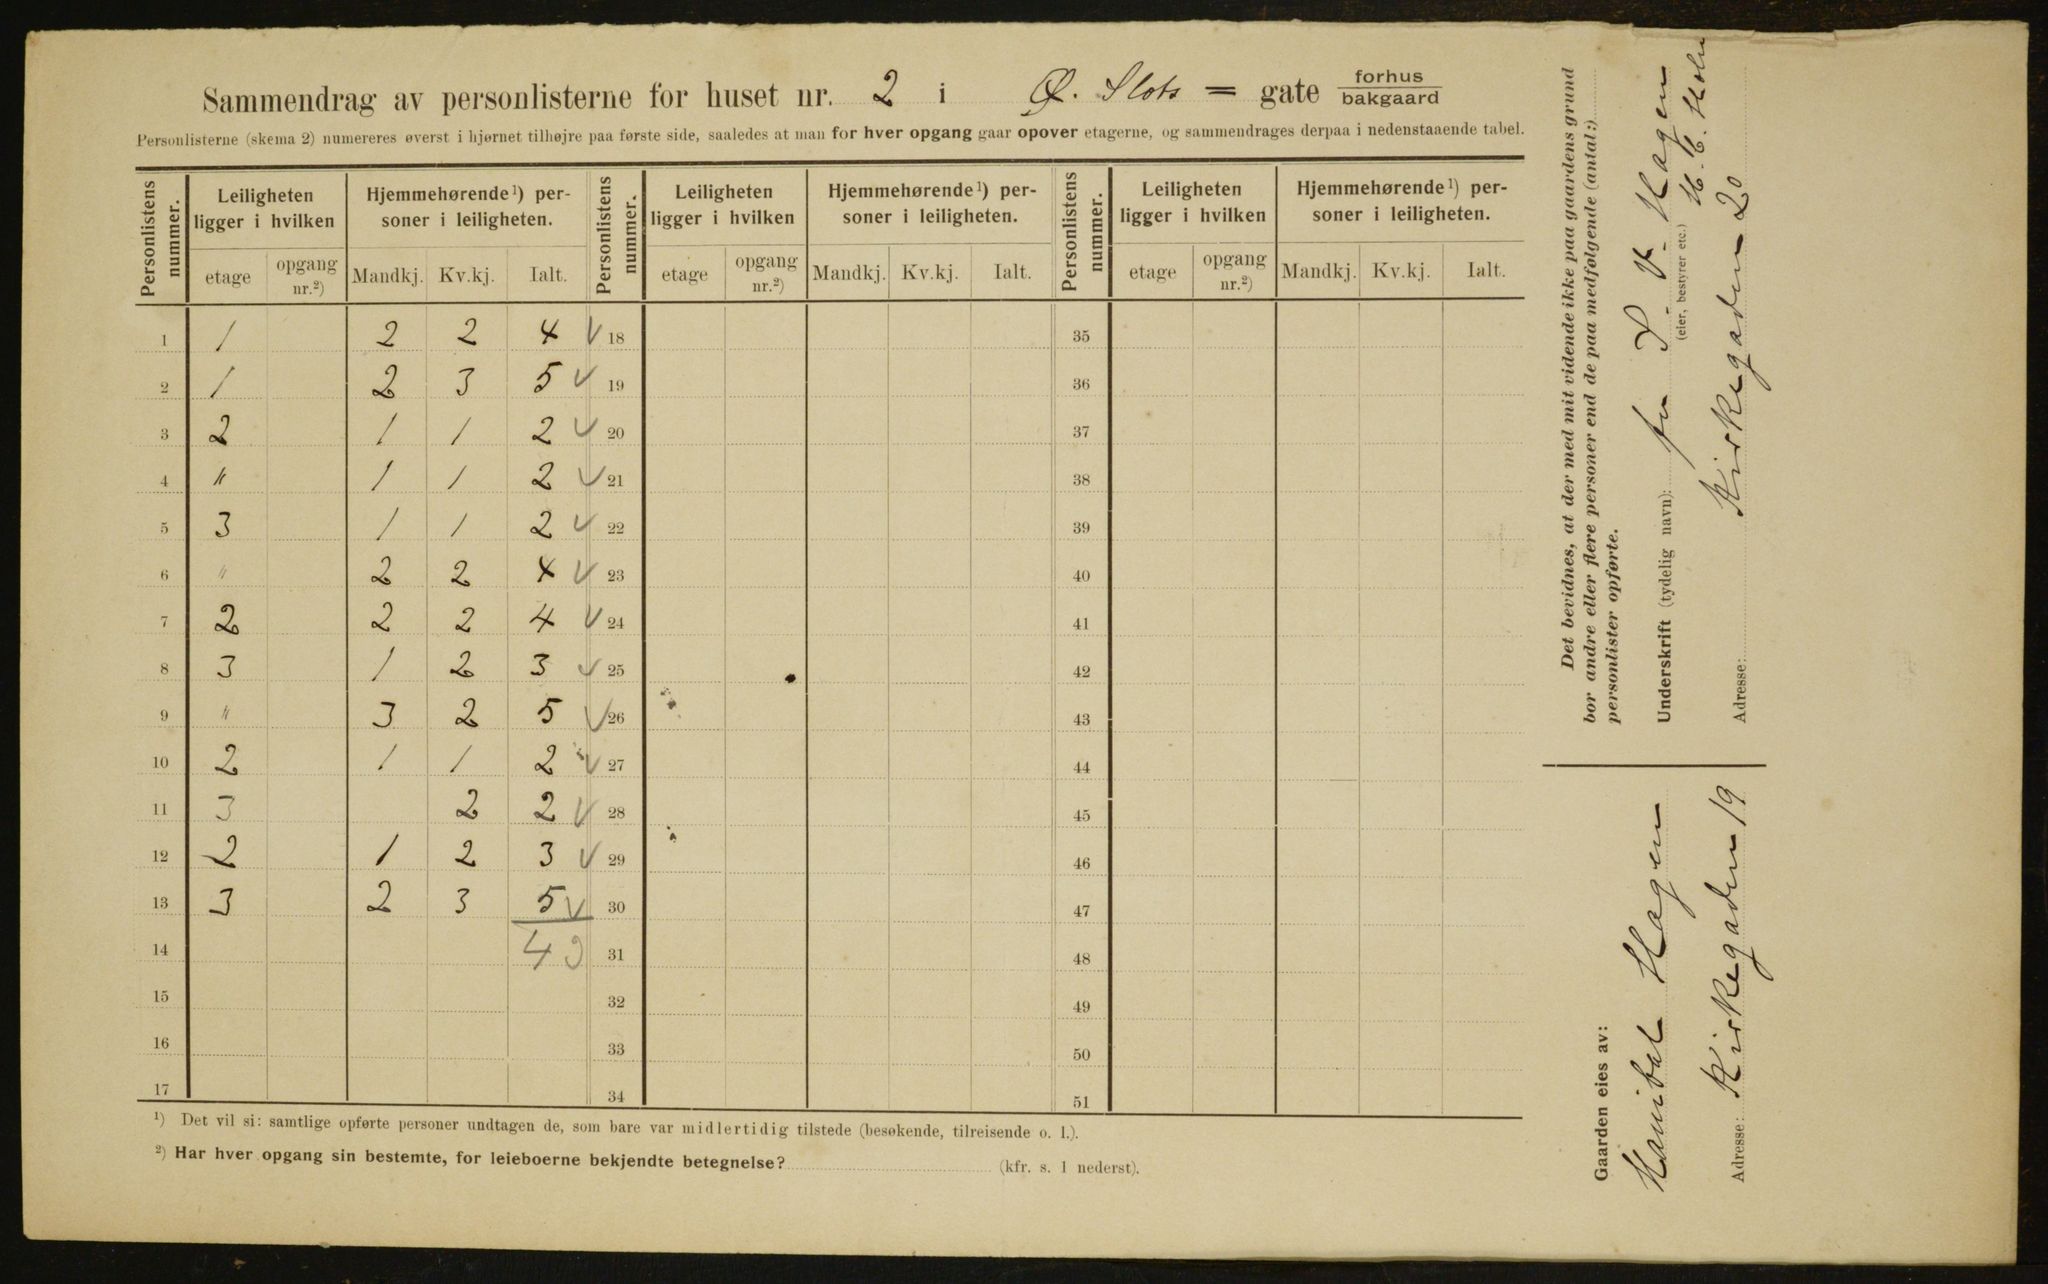 Sammendrag av personlisterne for huset nr. 2 i Ø. Slots = gate forhus
bakgaard
Personlisterne (skema 2) numereres øverst i hjørnet tilhøjre paa første side, saaledes at man for hver opgang gaar opover etagerne, og sammendrages derpaa i nedenstaaende tabel.
Personlistens nummer. Leiligheten ligger i hvilken Hjemmehørende¹) personer i leiligheten. Personlistens nummer. Leiligheten ligger i hvilken Hjemmehørende¹) personer i leiligheten. Personlistens nummer. Leiligheten ligger i hvilken Hjemmehørende¹) personer i leiligheten.
etage opgang nr.²) Mandkj. Kv.kj. Ialt. etage opgang nr.²) Mandkj. Kv.kj. Ialt. etage opgang nr.²) Mandkj. Kv.kj. Ialt.
1 1 2 2 4 √ 18 35
2 1 2 3 5 √ 19 36
3 2 1 1 2 √ 20 37
4 " 1 1 2 √ 21 38
5 3 1 1 2 √ 22 39
6 " 2 2 4 √ 23 40
7 2 2 2 4 √ 24 41
8 3 1 2 3 √ 25 42
9 " 3 2 5 √ 26 43
10 2 1 1 2 √ 27 44
11 3 2 2 √ 28 45
12 2 1 2 3 √ 29 46
13 3 2 3 5 √ 30 47
14 43 31 48
15 32 49
16 33 50
17 34 51
¹) Det vil si: samtlige opførte personer undtagen de, som bare var midlertidig tilstede (besøkende, tilreisende o. l.).
²) Har hver opgang sin bestemte, for leieboerne bekjendte betegnelse? (kfr. s. 1 nederst).
Det bevidnes, at der med mit vidende ikke paa gaardens grund
bor andre eller flere personer end de paa medfølgende (antal:)
personlister opførte.
Underskrift (tydelig navn): H. Hagen
(eier, bestyrer etc.) H. C. Holm
Adresse: Kirkegaden 20
Gaarden eies av:
Hanibal Hagen
Adresse: Kirkegaden 19